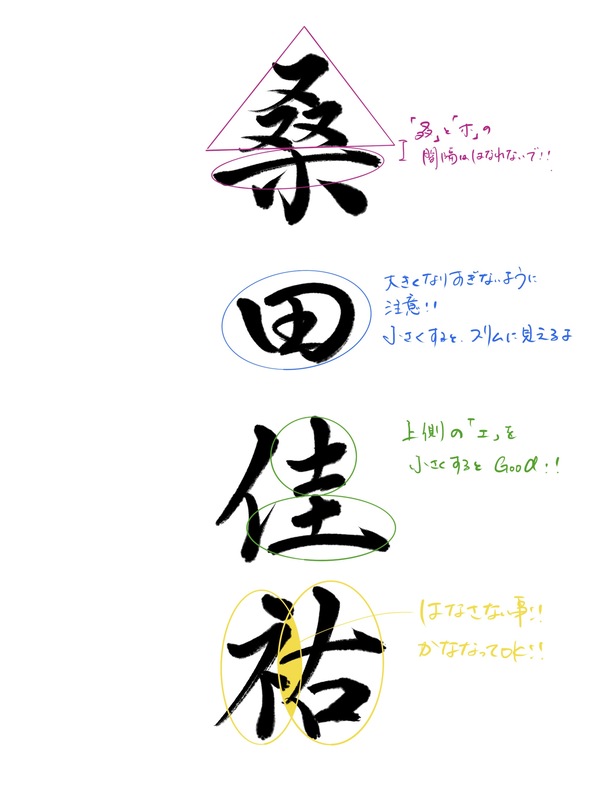 桑
「叒」と「ホ」の
間隔ははなれないで!!
田
大きくなりすぎないように
注意!!
小さくすると、スリムに見えるよ
佳
上側の「エ」を
小さくすると Good!!
祐
はなさない事!!
かさなってOK!!